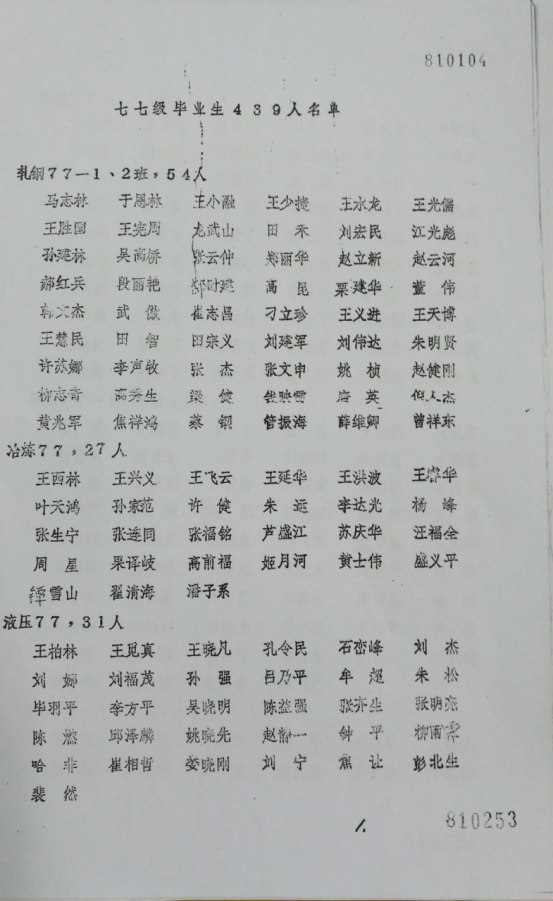 810104
七七级毕业生439人名单
轧钢77—1、2班,54人
马志林 于恩林 王小融 王少捷 王水龙 王光儒
王胜国 王宪周 龙武山 田禾 刘宏民 江光彪
孙建林 吴高桥 张云仲 郑丽华 赵立新 赵云河
郝红兵 段丽艳 高昆 栗建华 董伟
韩文杰 武傲 崔志昌 刁立珍 王义进 王天博
王慧民 田智 田宗义 刘建军 刘伟达 朱明贤
许苏娜 李声牧 张杰 张文申 姚桢 赵健刚
柳志奇 高秀生 梁俊 钱映雪 唐英
黄兆军 焦祥鸿 蔡钢 管振海 薛维卿 曾祥东
冶炼77,27人
王西林 王兴义 王飞云 王延华 王洪波
叶天鸿 孙家范 许健 朱运 李达光 杨峰
张生宁 张连同 张福铭 芦盛江 苏庆华 汪福全
周星 果译岐 高前福 姬月河 黄士伟 盛义平
谭雪山 翟清海 潘子系
液压77,31人
王柏林 王觅真 王晓凡 孔令民 石峦峰 刘杰
刘娜 刘福茂 孙强 吕乃平 牟超 朱松
毕羽平 李方平 吴晓明 陈益强 张齐生 张明亮
陈燃 邱泽麟 姚晓先 赵静一 钟平
哈非 崔相哲 娄晓刚 刘宁 焦让 彭北生
裴然
1.
810253